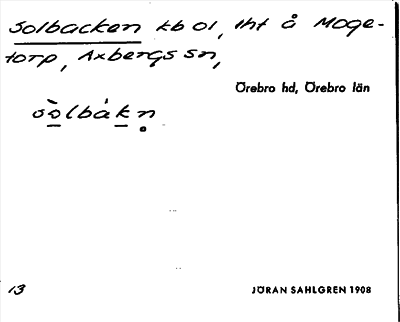 Solbacken kb 01, lht å Moge-
torp, Axbergs sn,
Örebro hd, Örebro län
sòlbákn̥
13
JÖRAN SAHLGREN 1908